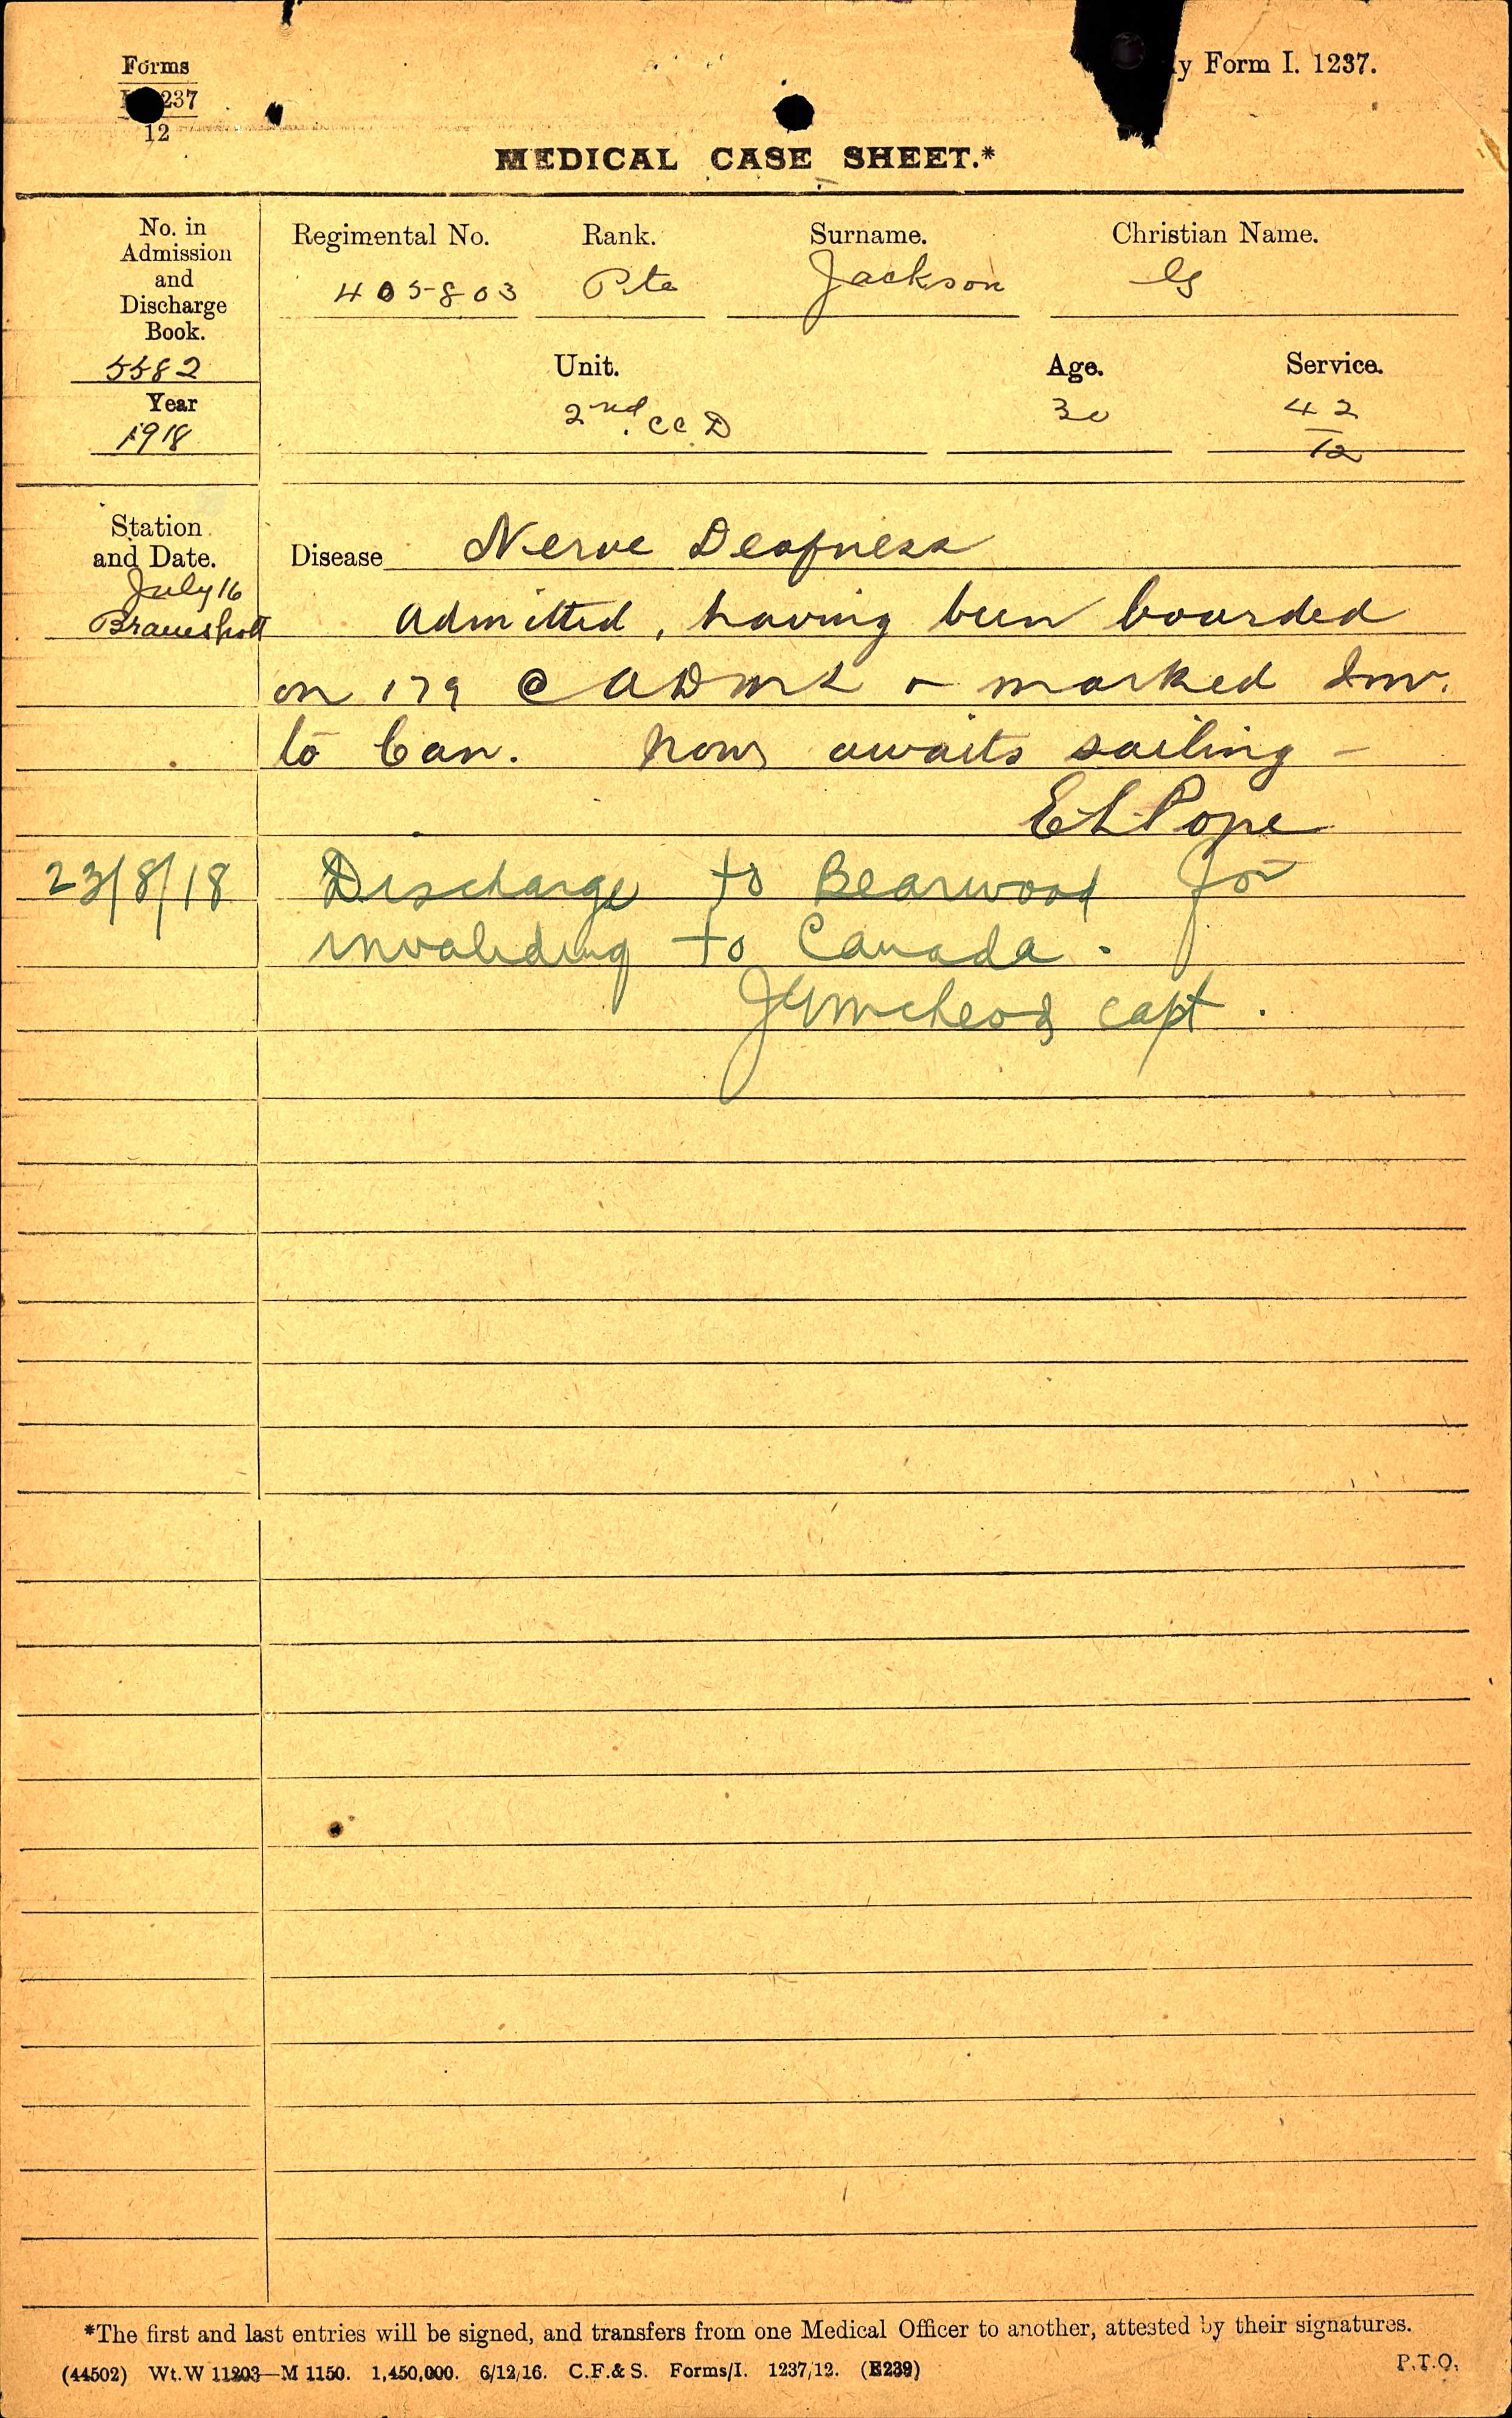 Forms
237
12
y Form I. 1237.
MEDICAL CASE SHEET.*
No. in
Admission
and
Discharge
Book.
5582
Year
1918
Regimental No. Rank. Surname. Christian Name.
405803 Pte Jackson G
Unit. Age. Service.
2nd. CCD 30 42
12
Station
and Date.
July 16
Bramshott
Disease Nerve Deafness
Admitted, having been boarded
on 179 @ ADMS & marked Inv.
to Can. Now awaits sailing -
EL Pope
23/8/18 Discharge to Bearwood for
invaliding to Canada.
McLeod Capt.
*The first and last entries will be signed, and transfers from one Medical Officer to another, attested by their signatures.
(44502) Wt. W 11203—M 1150. 1,450,000. 6/12/16. C.F.& S. Forms/I. 1237/12. (E239)
P.T.O.